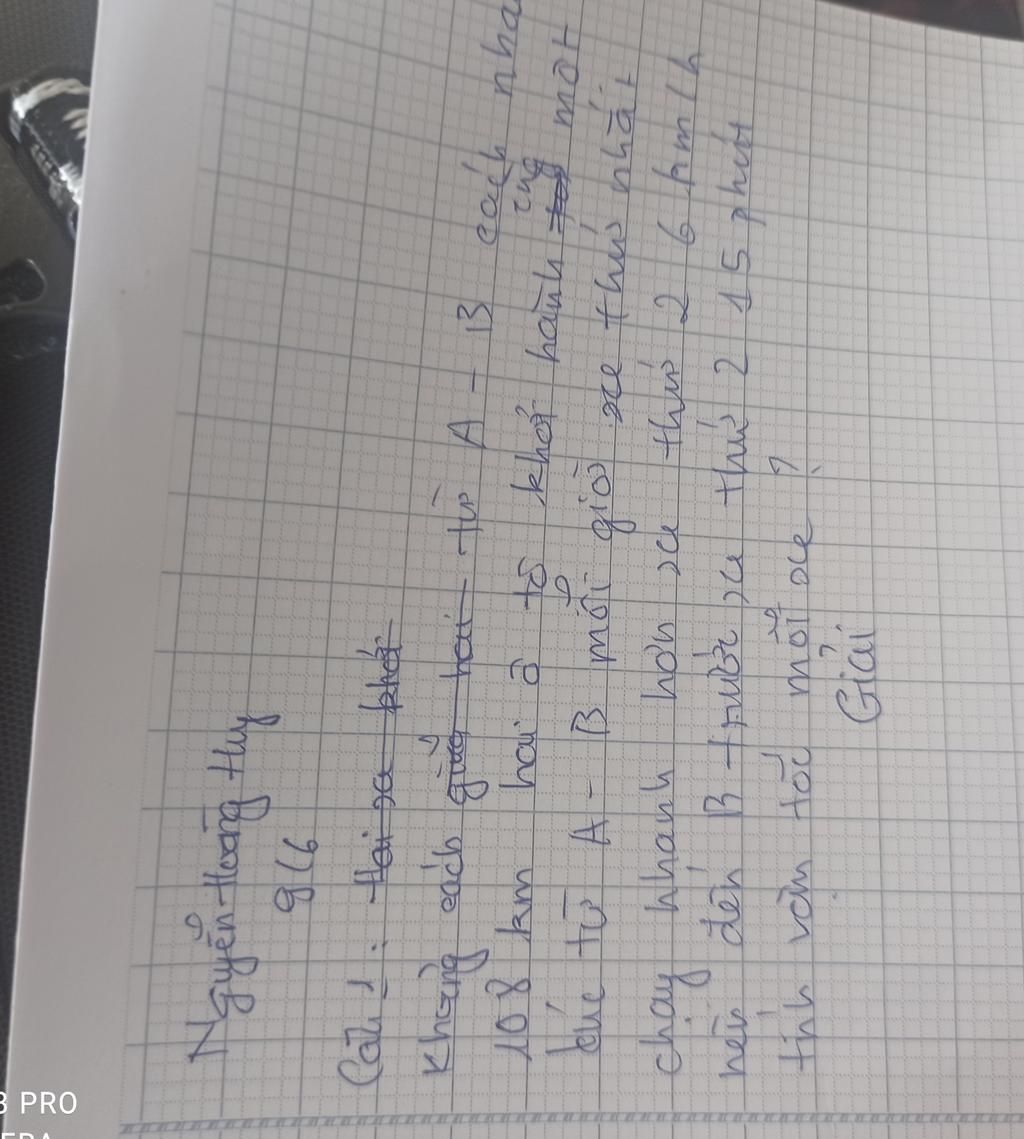 Nguyễn Hoàng Huy
9/6
Câu 1: Hai xe khởi
Khoảng cách giữa hai từ A - B cách nha
108 km hai ô tô khởi hành cùng một
lúc từ A - B mỗi giờ xe thứ nhất
chạy nhanh hơn xe thứ 2 6 km/h
nên đến B trước xe thứ 2 15 phút
tính vận tốc mỗi xe ?
Giải
3 PRO